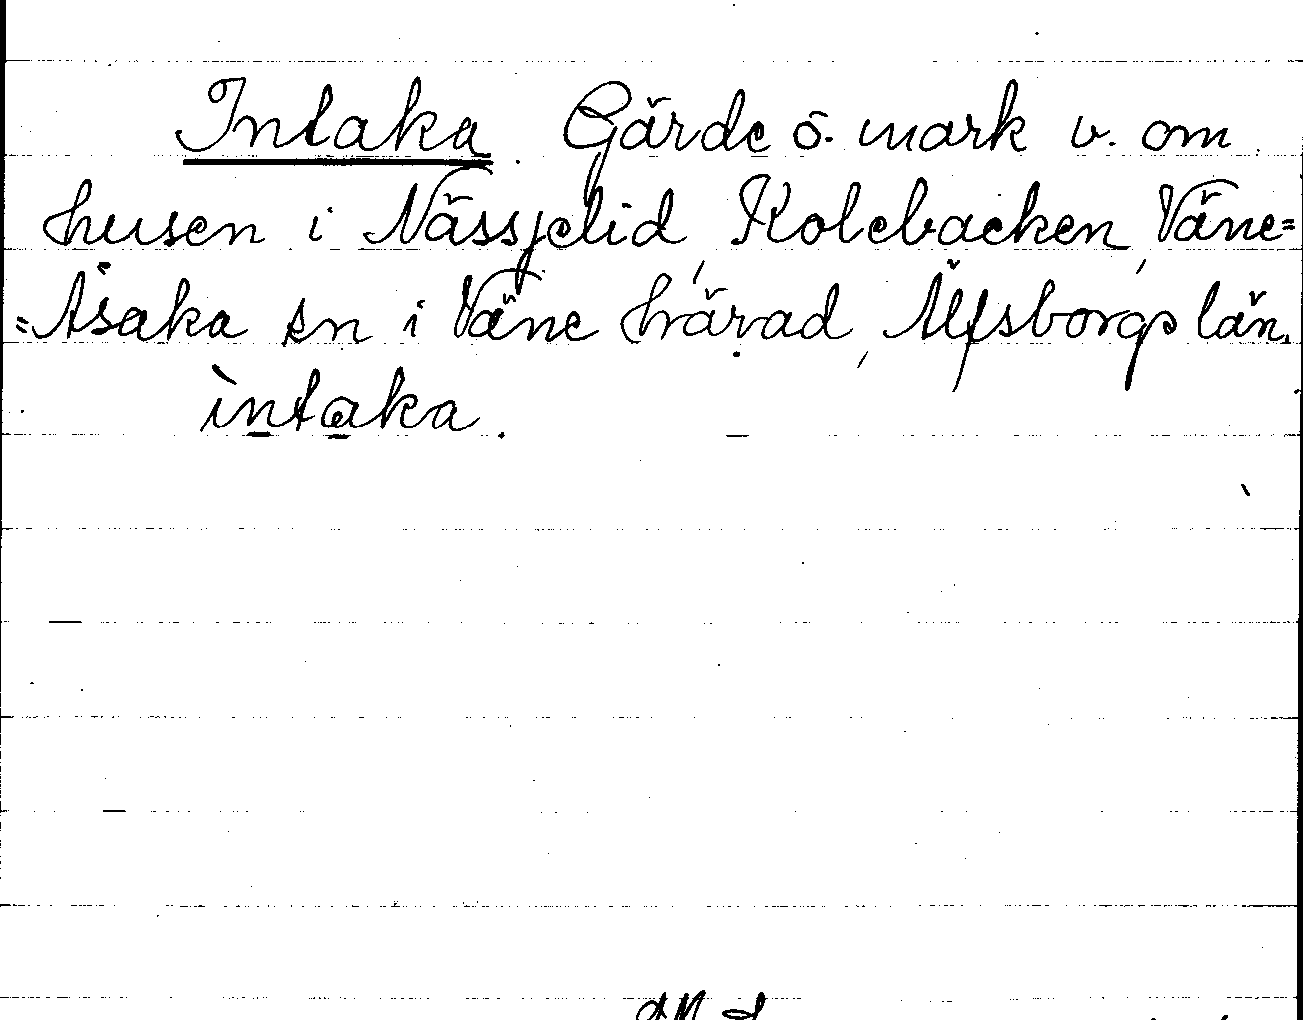 Intaka. Gärde o. mark v. om
husen i Nässjelid, Kolebacken, Väne=
=Åsaka sn i Väne härad, Älfsborgs län.
ìntaka.